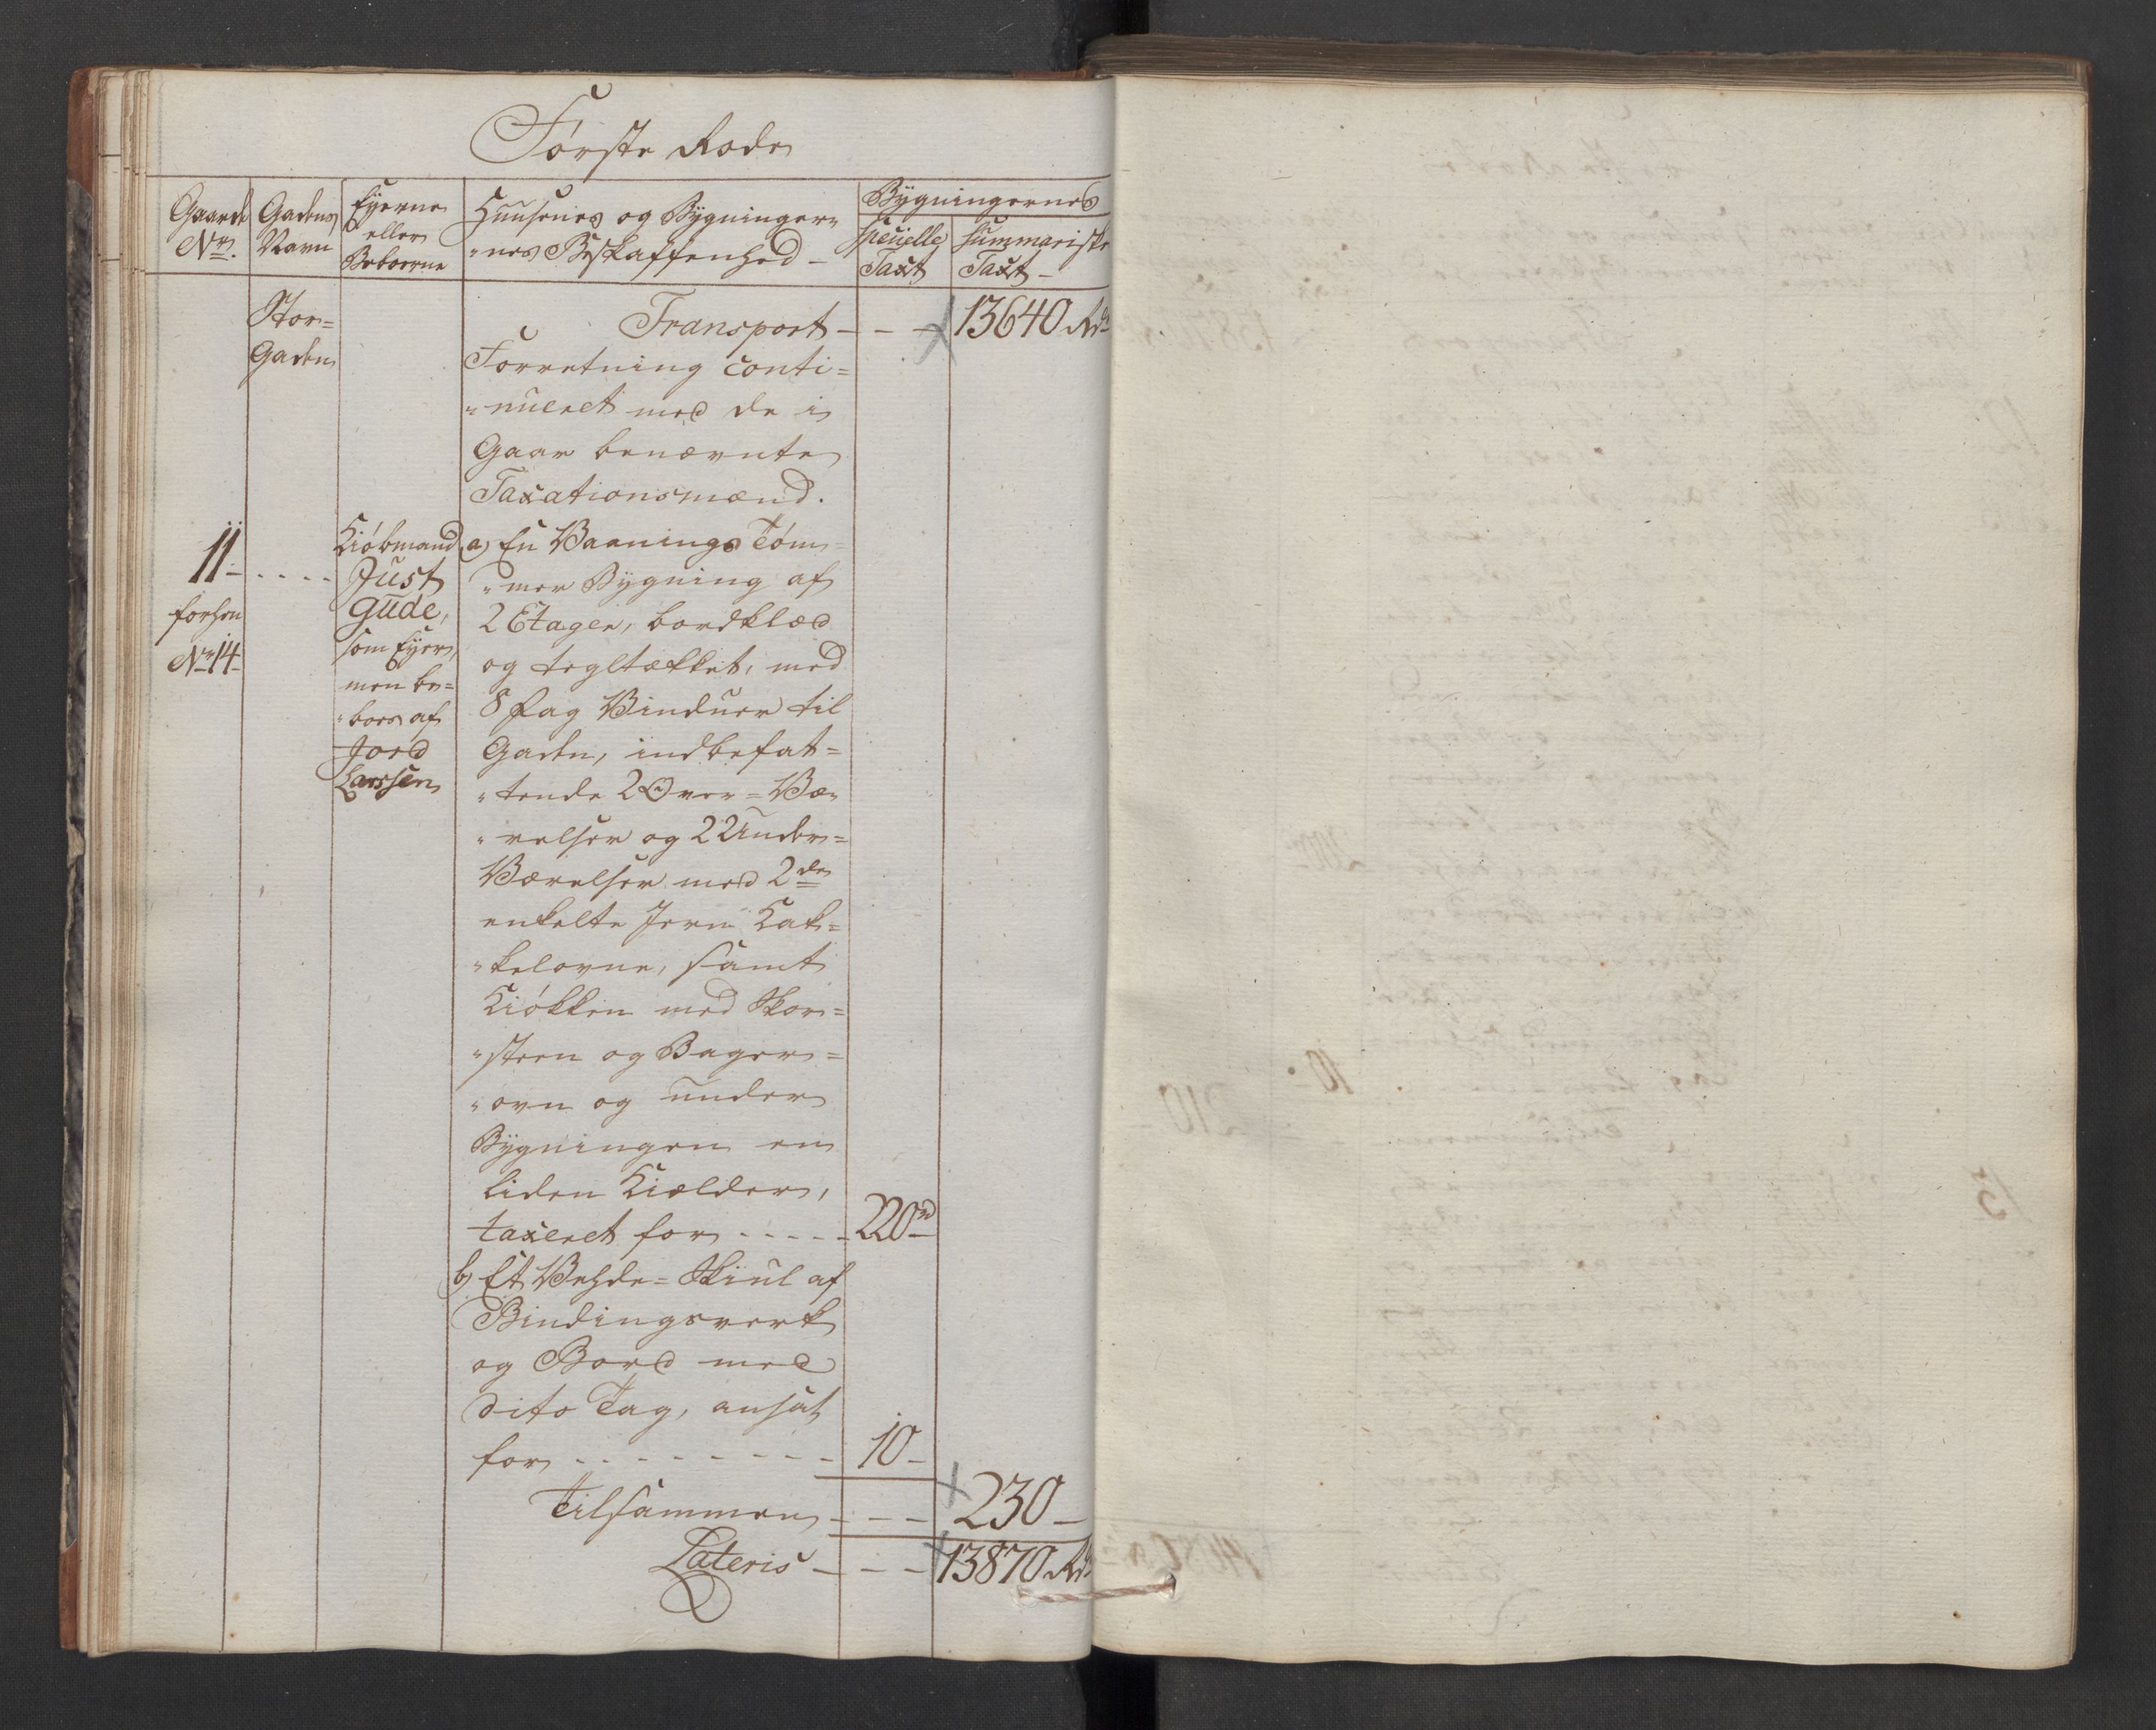 Første Rode
Gaards Nr. | Gadens Navn | Eyerne eller Beboerne | Huusenes og Bygninger-
„nes Beskaffenhed – | Bygningernes
specielle Taxt | summariske Taxt –
Stor=
Gaden
Transport – – – 13640 Rd
Forretning conti=
„nueret med de i
Gaar benævnte
Taxationsmænd.
11 - . . . .
forhen
No 14
Kiøbmand
Just
Gude,
som Eyer,
men be=
„boes af
Larssen
a) En Vaanings Tøm=
„mer Bygning af
2 Etager, bordklæd
og tegltækket, med
8 Fag Vinduer til
Gaden, indbefat=
„tende 2 Over=Væ„
„relser og 2 Under=
Værelser med 2de
enkelte Jern Kak=
„kelovne, samt
Kiøkken med Skor=
„steen og Bager=
„ovn og under
Bygningen en
liden Kielder,
taxeret for - - - - - 220 rd
b) Et Vehde=Skiul af
Bindingsverk
og Bord med
dito Tag, ansat
for - - - - - - - - 10 –
Tilsammen – – – 230 –
Lateris – – – 13870 Rd